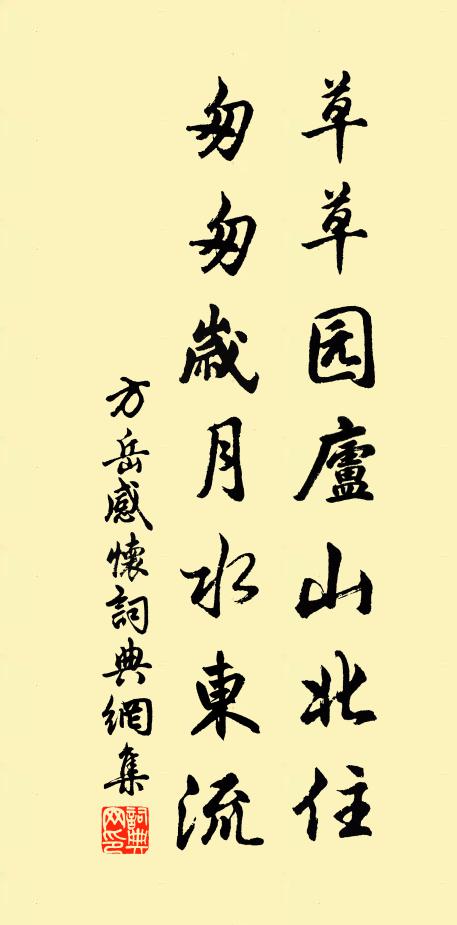 草草园廬山北住
匆匆歲月水東流
方岳感懷詞典網集
詞典网印